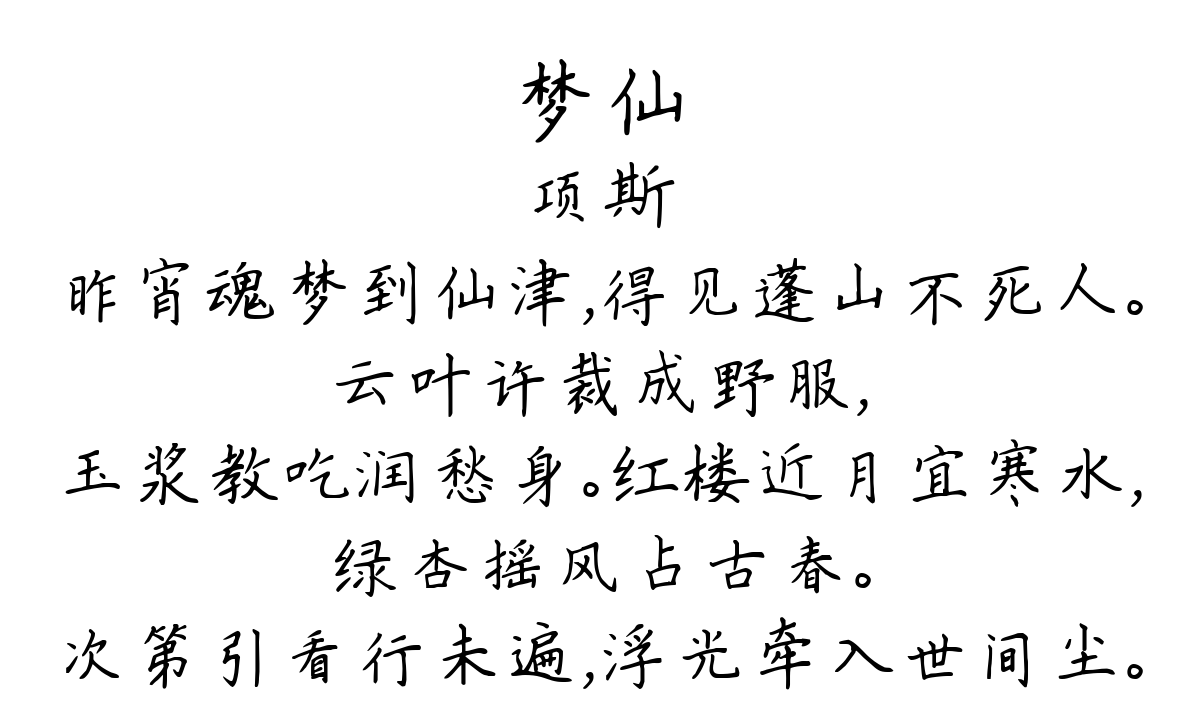 梦仙
项斯
昨宵魂梦到仙津,得见蓬山不死人。
云叶许裁成野服,
玉浆教吃润愁身。红楼近月宜寒水,
绿杏摇风占古春。
次第引看行未遍,浮光牵入世间尘。